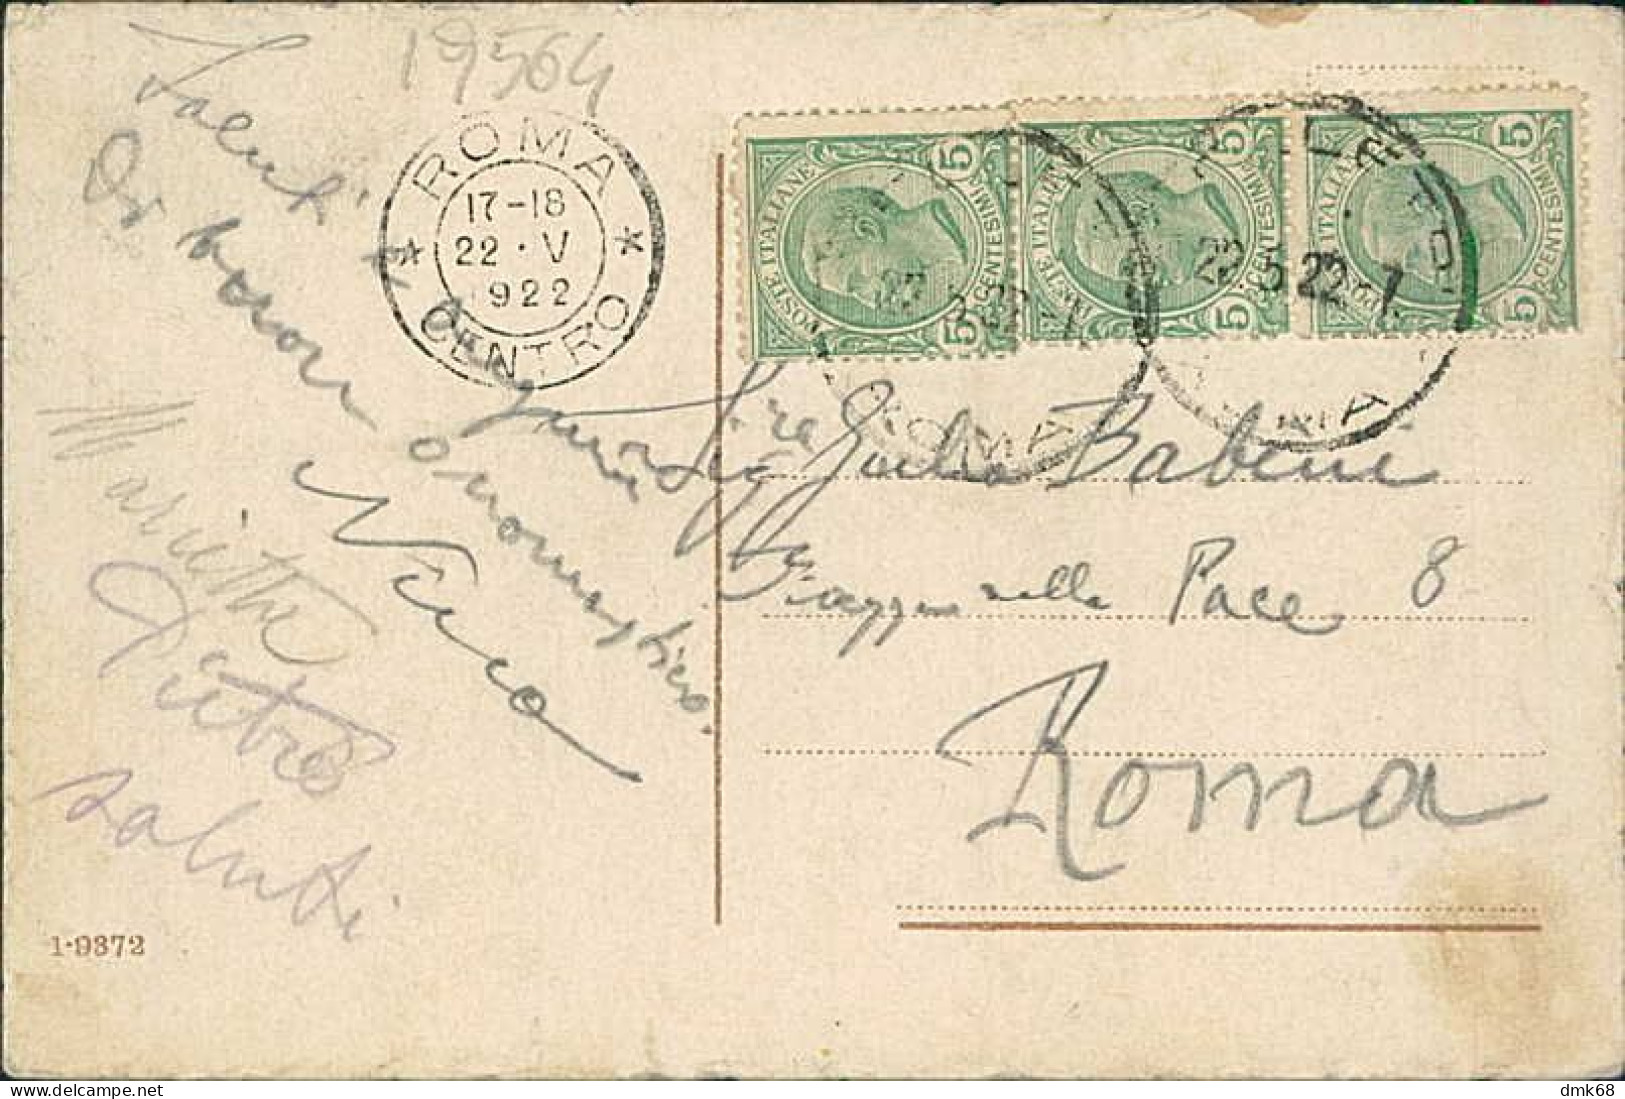 19564
Saluti e auguri
Di buon onomastico.
Nino
Marietta
Pietro
saluti
ROMA
17-18
22 · V
1922
CENTRO
POSTE ITALIANE
CENTESIMI
5
5
POSTE ITALIANE
CENTESIMI
5
5
POSTE ITALIANE
CENTESIMI
5
5
22 5 22 7
ROMA
ROMA
Giulia Babini
Piazza della Pace 8
Roma
1-9372
dmk68